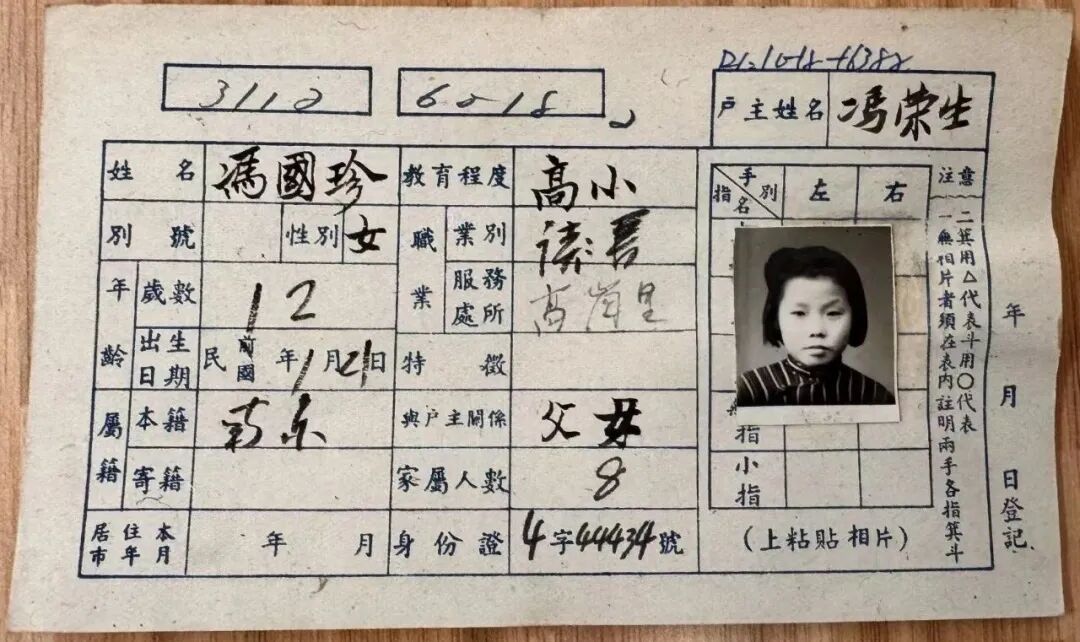 3112 6018
户主姓名 馮荣生
姓名 馮國珍 教育程度 高小
別號 性別 女 職業 業別 读书
年齡 歲數 12 服務處所 高崗里
出生日期 民前國 年 1月21日 特徵
屬籍 本籍 南京 與户主關係 父母
寄籍 家屬人數 8
居住本市年月 年 月 身份證 4字44434號
手別 指名 左 右
指
小指
(上粘貼相片)
注意
一無相片者須在表内註明兩手各指箕斗
二箕用△代表斗用○代表
年 月 日登記